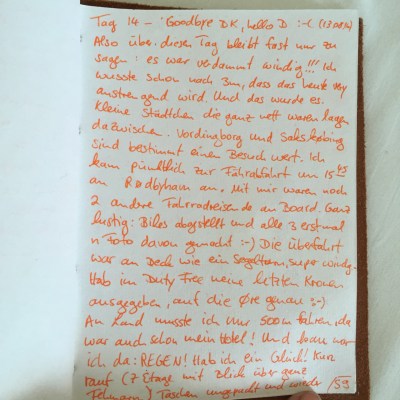 Tag 14 – Goodbye DK, hello D :-( (13.08.14)
Also über diesen Tag bleibt fast nur zu
sagen: es war verdammt windig!!! Ich
wusste schon nach 3m, dass das heute very
anstrengend wird. Und das wurde es.
Kleine Städtchen die ganz nett waren lagen
dazwischen: Vordingborg und Sakskøbing
sind bestimmt einen Besuch wert. Ich
kam pünktlich zur Fährabfahrt um 15:45
an Rødbyhavn an. Mit mir waren noch
2 andere Fahrradreisende an Board. Ganz
lustig: Bikes abgestellt und alle 3 erstmal
n Foto davon gemacht :-) Die Überfahrt
war an Deck wie ein Segeltörn, super windig.
Hab im Duty Free meine letzten Kronen
ausgegeben, auf die Øre genau :-)
An Land musste ich nur 500m fahren, da
war auch schon mein Hotel! Und kaum war
ich da: REGEN! Hab ich ein Glück! Kurz
rauf (7. Etage mit Blick über ganz
Fehmarn) Taschen ausgepackt und wieder /59